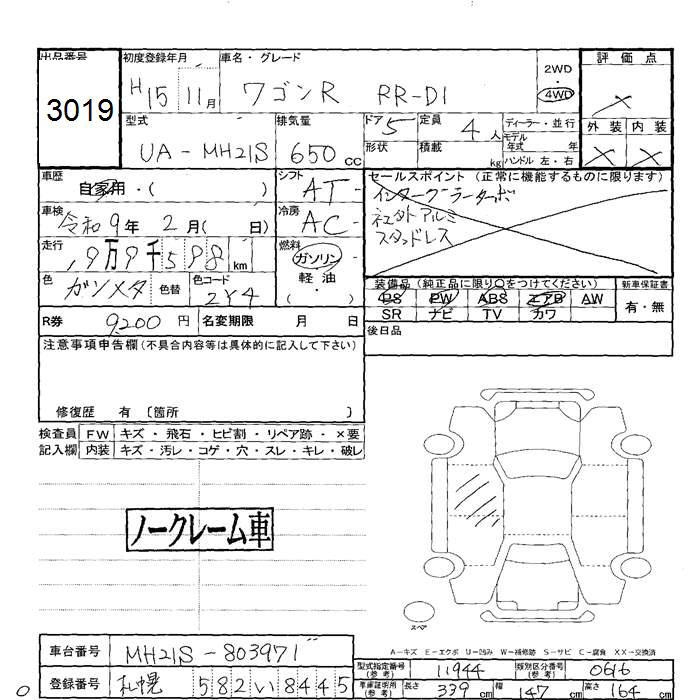 出品番号 初度登録年月 車名・グレード 2WD 評価点
3019 H15 11月 ワゴンR RR-DI 4WD
型式 排気量 ドア 5 定員 4人 ディーラー・並行 外装 内装
UA-MH21S 650cc 形状 積載 kg モデル年式 年 ハンドル 左・右
車歴 シフト セールスポイント (正常に機能するものに限ります)
自家用・( ) AT
車検 令和9年 2月( 日) 冷房 AC
インタークーラーターボ
スタッドレス
走行 19万9千598km 燃料 ガソリン・軽油・( )
色 ガンメタ 色替 色コード 2Y4
装備品(純正品に限り○をつけてください) 新車保証書
PS PW ABS エアB AW 有・無
SR ナビ TV カワ
R券 9200円 名変期限 月 日 後日品
注意事項申告欄(不具合内容等は具体的に記入して下さい)
修復歴 有〔箇所 〕
検査員 FW キズ・飛石・ヒビ割・リペア跡・×要
記入欄 内装 キズ・汚レ・コゲ・穴・スレ・キレ・破レ
ノークレーム車
スペア
A-キズ E-エクボ U-凹み W-補修跡 S-サビ C-腐食 XX-交換済
車台番号 MH21S-803971
型式指定番号(参考) 11944 類別区分番号(参考) 0616
登録番号 札幌 582い8445
車庫証明用(参考) 長さ 339cm 幅 147cm 高さ 164cm